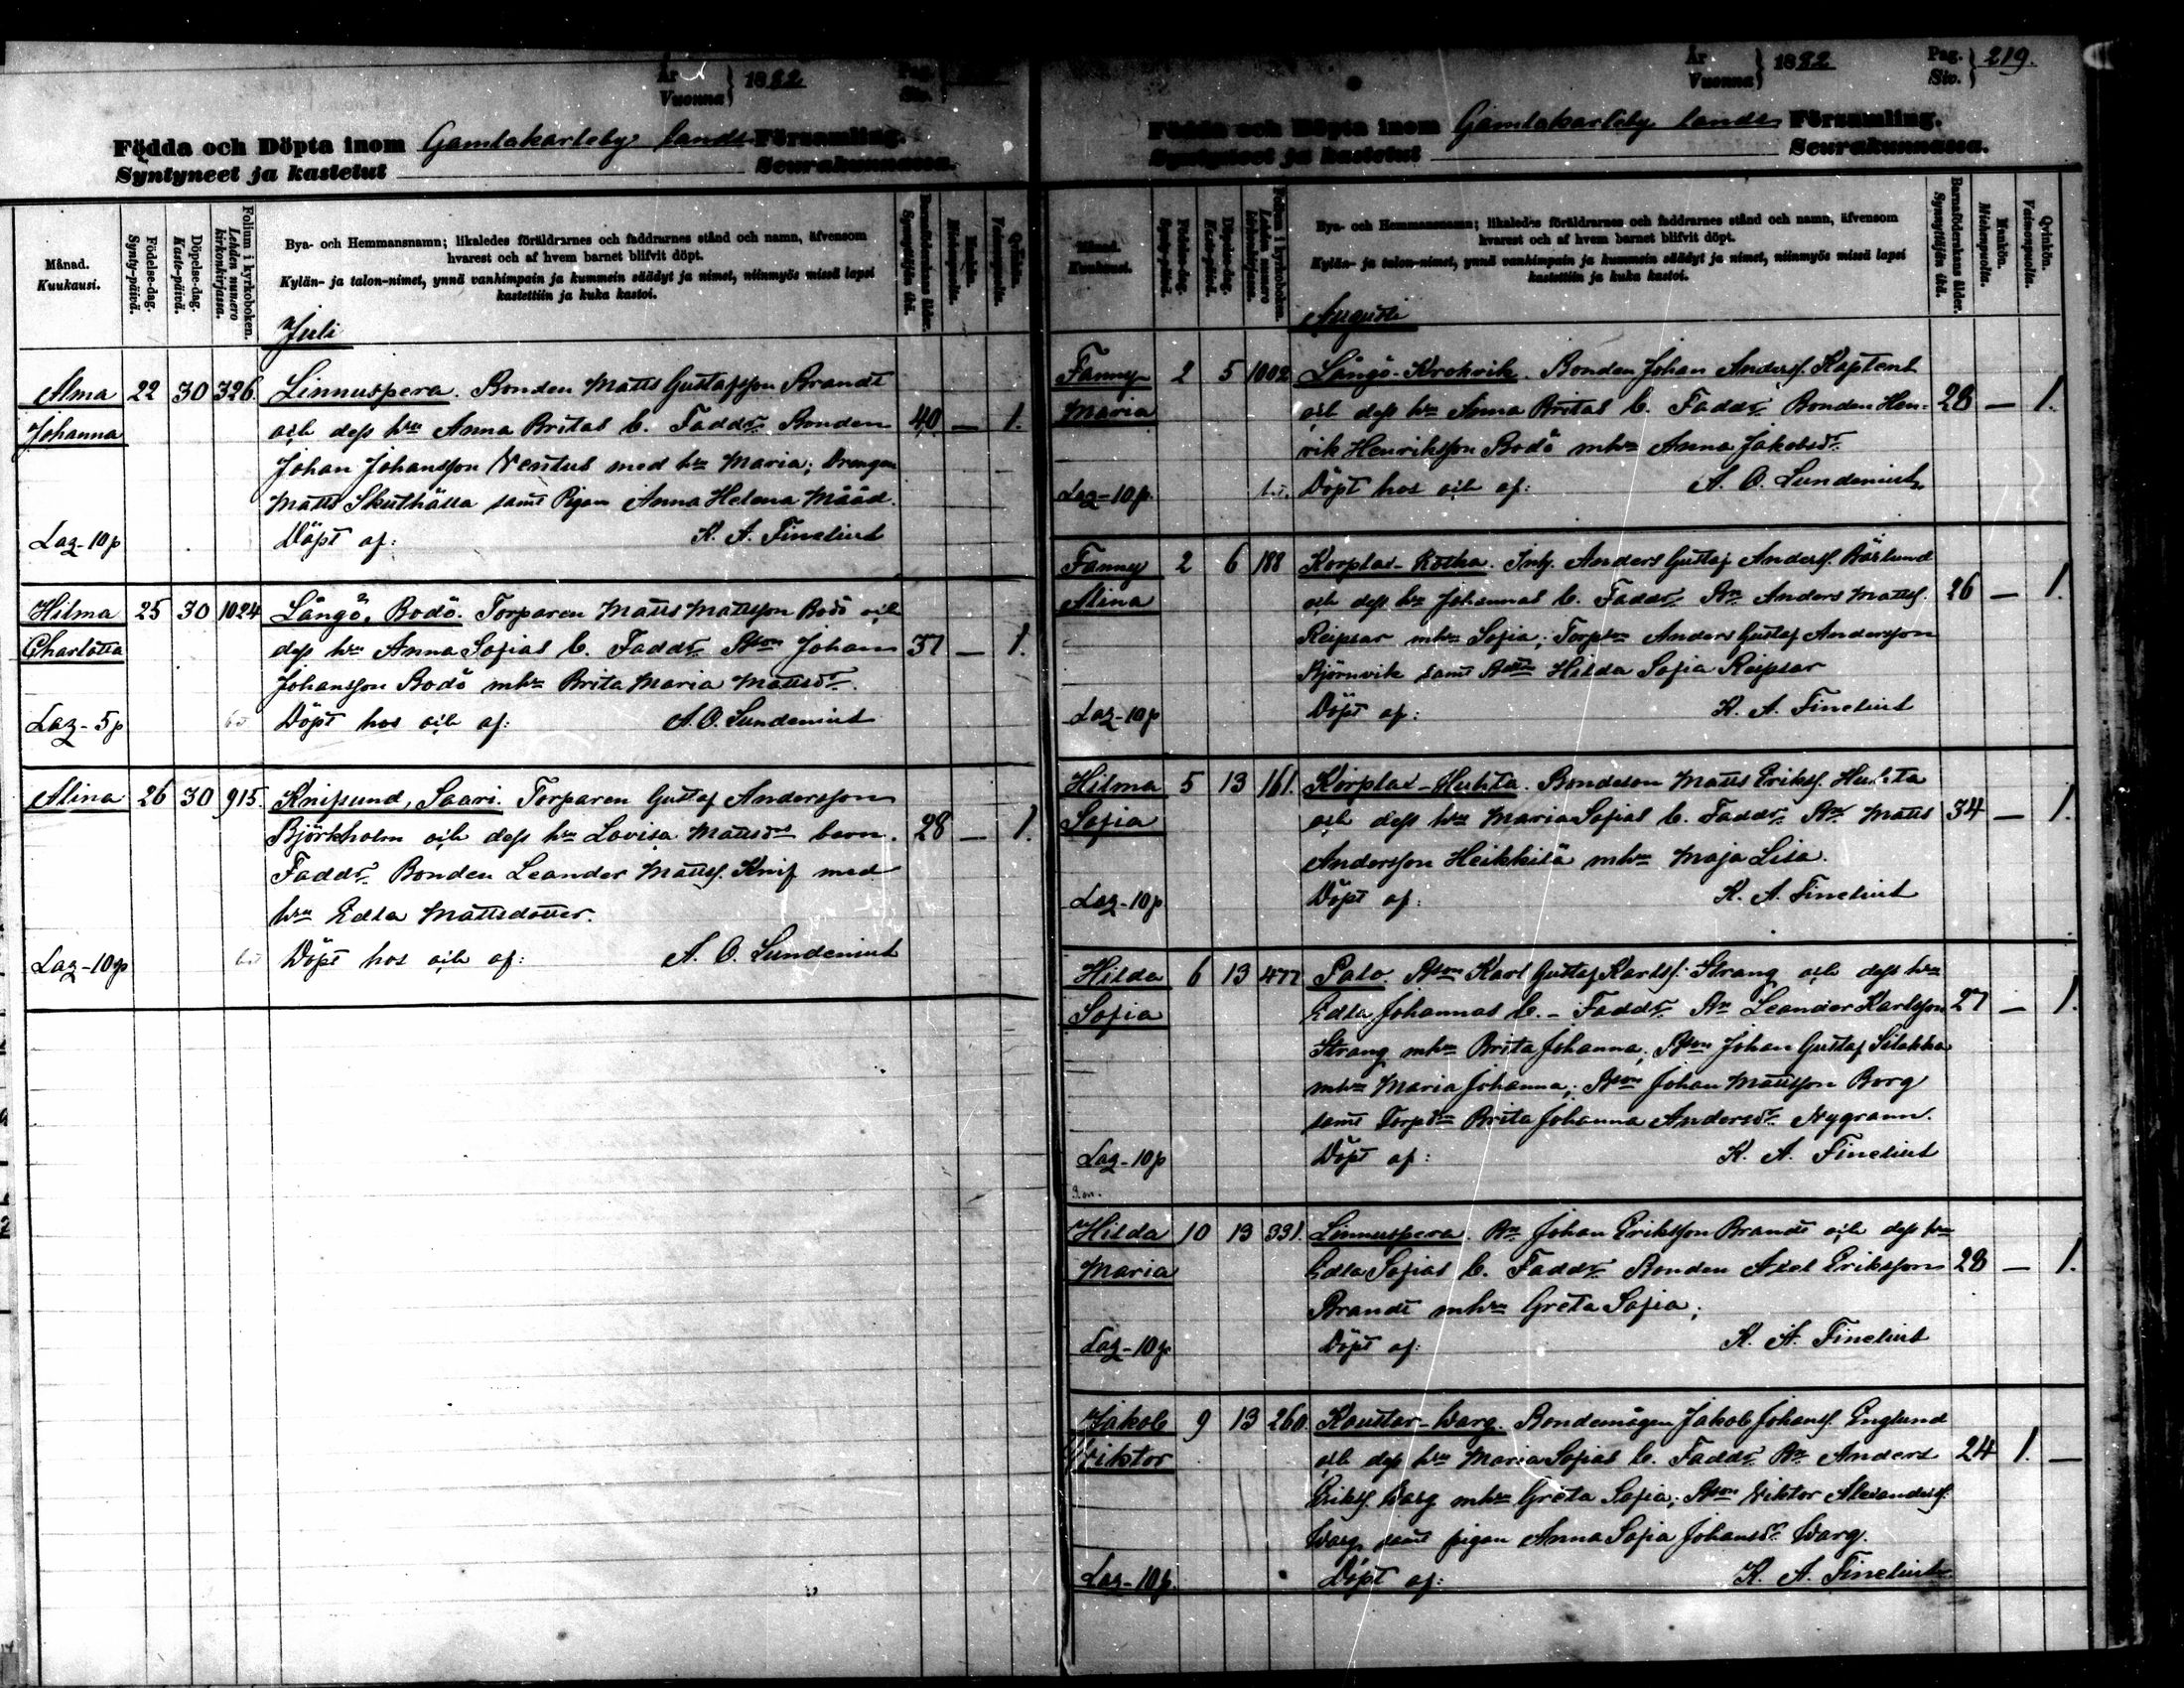 År
Vuonna } 1882
Pag.
Siv.
Födda och Döpta inom Gamlakarleby lands Församling.
Syntyneet ja kastetut Seurakunnassa.
Månad.
Kuukausi.
Födelse-dag.
Synty-päivä.
Döpelse-dag.
Kaste-päivä.
Folium i kyrkoboken.
Lehden numero kirkonkirjassa.
Bya- och Hemmansnamn; likaledes föräldrarnes och faddrarnes stånd och namn, äfvensom
hvarest och af hvem barnet blifvit döpt.
Kylän- ja talon-nimet, ynnä vanhimpain ja kummein säädyt ja nimet, niinmyös missä lapsi
kastettiin ja kuka kastoi.
Juli
Alma 22 30 326. Linnuspera. Bonden Matts Gustafsson Brandt
Johanna och dess hru Anna Britas b. Faddr. Bonden 40 — 1.
Johan Johansson Ventus med hru Maria; Drengen
Matts Skuthälla samt Pigan Anna Helena Määd.
Laz - 10 p Döpt af: K. A. Finelius
Hilma 25 30 1024 Långö, Bodö. Torparen Matts Mattsson Bodö och
Charlotta dess hru Anna Sofias b. Faddr. Bson Johan 37 — 1.
Johansson Bodö mhru Brita Maria Mattsdr.
Laz - 5 p Döpt hos och af: A. O. Sundenius
Alina 26 30 915. Knifsund, Saari. Torparen Gustaf Andersson
Björkholm och dess hru Lovisa Mattsdrs barn. 28 — 1.
Faddr. Bonden Leander Mattss. Knif med
hru Edla Mattsdotter.
Laz - 10 p Döpt hos och af: A. O. Sundenius
År
Vuonna } 1882
Pag.
Siv. } 219.
Födda och Döpta inom Gamlakarleby lands Församling.
Syntyneet ja kastetut Seurakunnassa.
Månad.
Kuukausi.
Födelse-dag.
Synty-päivä.
Döpelse-dag.
Kaste-päivä.
Folium i kyrkoboken.
Lehden numero kirkonkirjassa.
Bya- och Hemmansnamn; likaledes föräldrarnes och faddrarnes stånd och namn, äfvensom
hvarest och af hvem barnet blifvit döpt.
Kylän- ja talon-nimet, ynnä vanhimpain ja kummein säädyt ja nimet, niinmyös missä lapsi
kastettiin ja kuka kastoi.
Barnaföderskans ålder.
Synnyttäjän ikä.
Mankön.
Miehenpuolia.
Qvinkön.
Vaimonpuolia.
Augusti
Fanny 2 5 1002 Långö - Krokvik. Bonden Johan Anderss. Kaptens
Maria och dess hru Anna Britas b. Faddr. Bonden Hen- 28 — 1.
rik Henriksson Bodö mhru Anna Jakobsdr.
Laz - 10 p. Döpt hos och af: A. O. Sundenius
Fanny 2 6 188 Korplax - Kotka. Inh. Anders Gustaf Anderss. Bäslund
Alina och dess hru Johannas b. Faddr. Bn Anders Mattss. 26 — 1.
Reipsar mhru Sofia; Torpson Anders Gustaf Andersson
Björnvik samt Bdttr Hilda Sofia Reipsar
Laz - 10 p Döpt af: K. A. Finelius
Hilma 5 13 161. Korplax - Huhta. Bondeson Matts Erikss. Huhta
Sofia och dess hru Maria Sofias b. Faddr. Bn Matts 34 — 1.
Andersson Heikkilä mhru Maja Lisa.
Laz - 10 p Döpt af: K. A. Finelius
Hilda 6 13 477 Palo. Bson Karl Gustaf Karlss. Strang och dess hru
Sofia Edla Johannas b. - Faddr. Bn Leander Karlsson 27 — 1.
Strang mhru Brita Johanna; Bson Johan Gustaf Silakka
mhru Maria Johanna; Bson Johan Mattsson Borg
samt Torpdr Brita Johanna Andersdr. Nygrann.
Laz - 10 p Döpt af: K. A. Finelius
Hilda 10 13 331. Linnuspera. Bn Johan Eriksson Brandt och dess hru
Maria Edla Sofias b. Faddr. Bonden Axel Eriksson 28 — 1.
Brandt mhru Greta Sofia;
Laz - 10 p Döpt af: K. A. Finelius
Jakob 9 13 260. Kaustar - Warg. Bondemågen Jakob Johanss. Englund
Wiktor och dess hru Maria Sofias b. Faddr. Bn Anders 24 1. —
Erikss. Warg mhru Greta Sofia; Bson Wiktor Alexanderss.
Warg samt pigan Anna Sofia Johansdr. Warg.
Laz - 10 p. Döpt af: K. A. Finelius